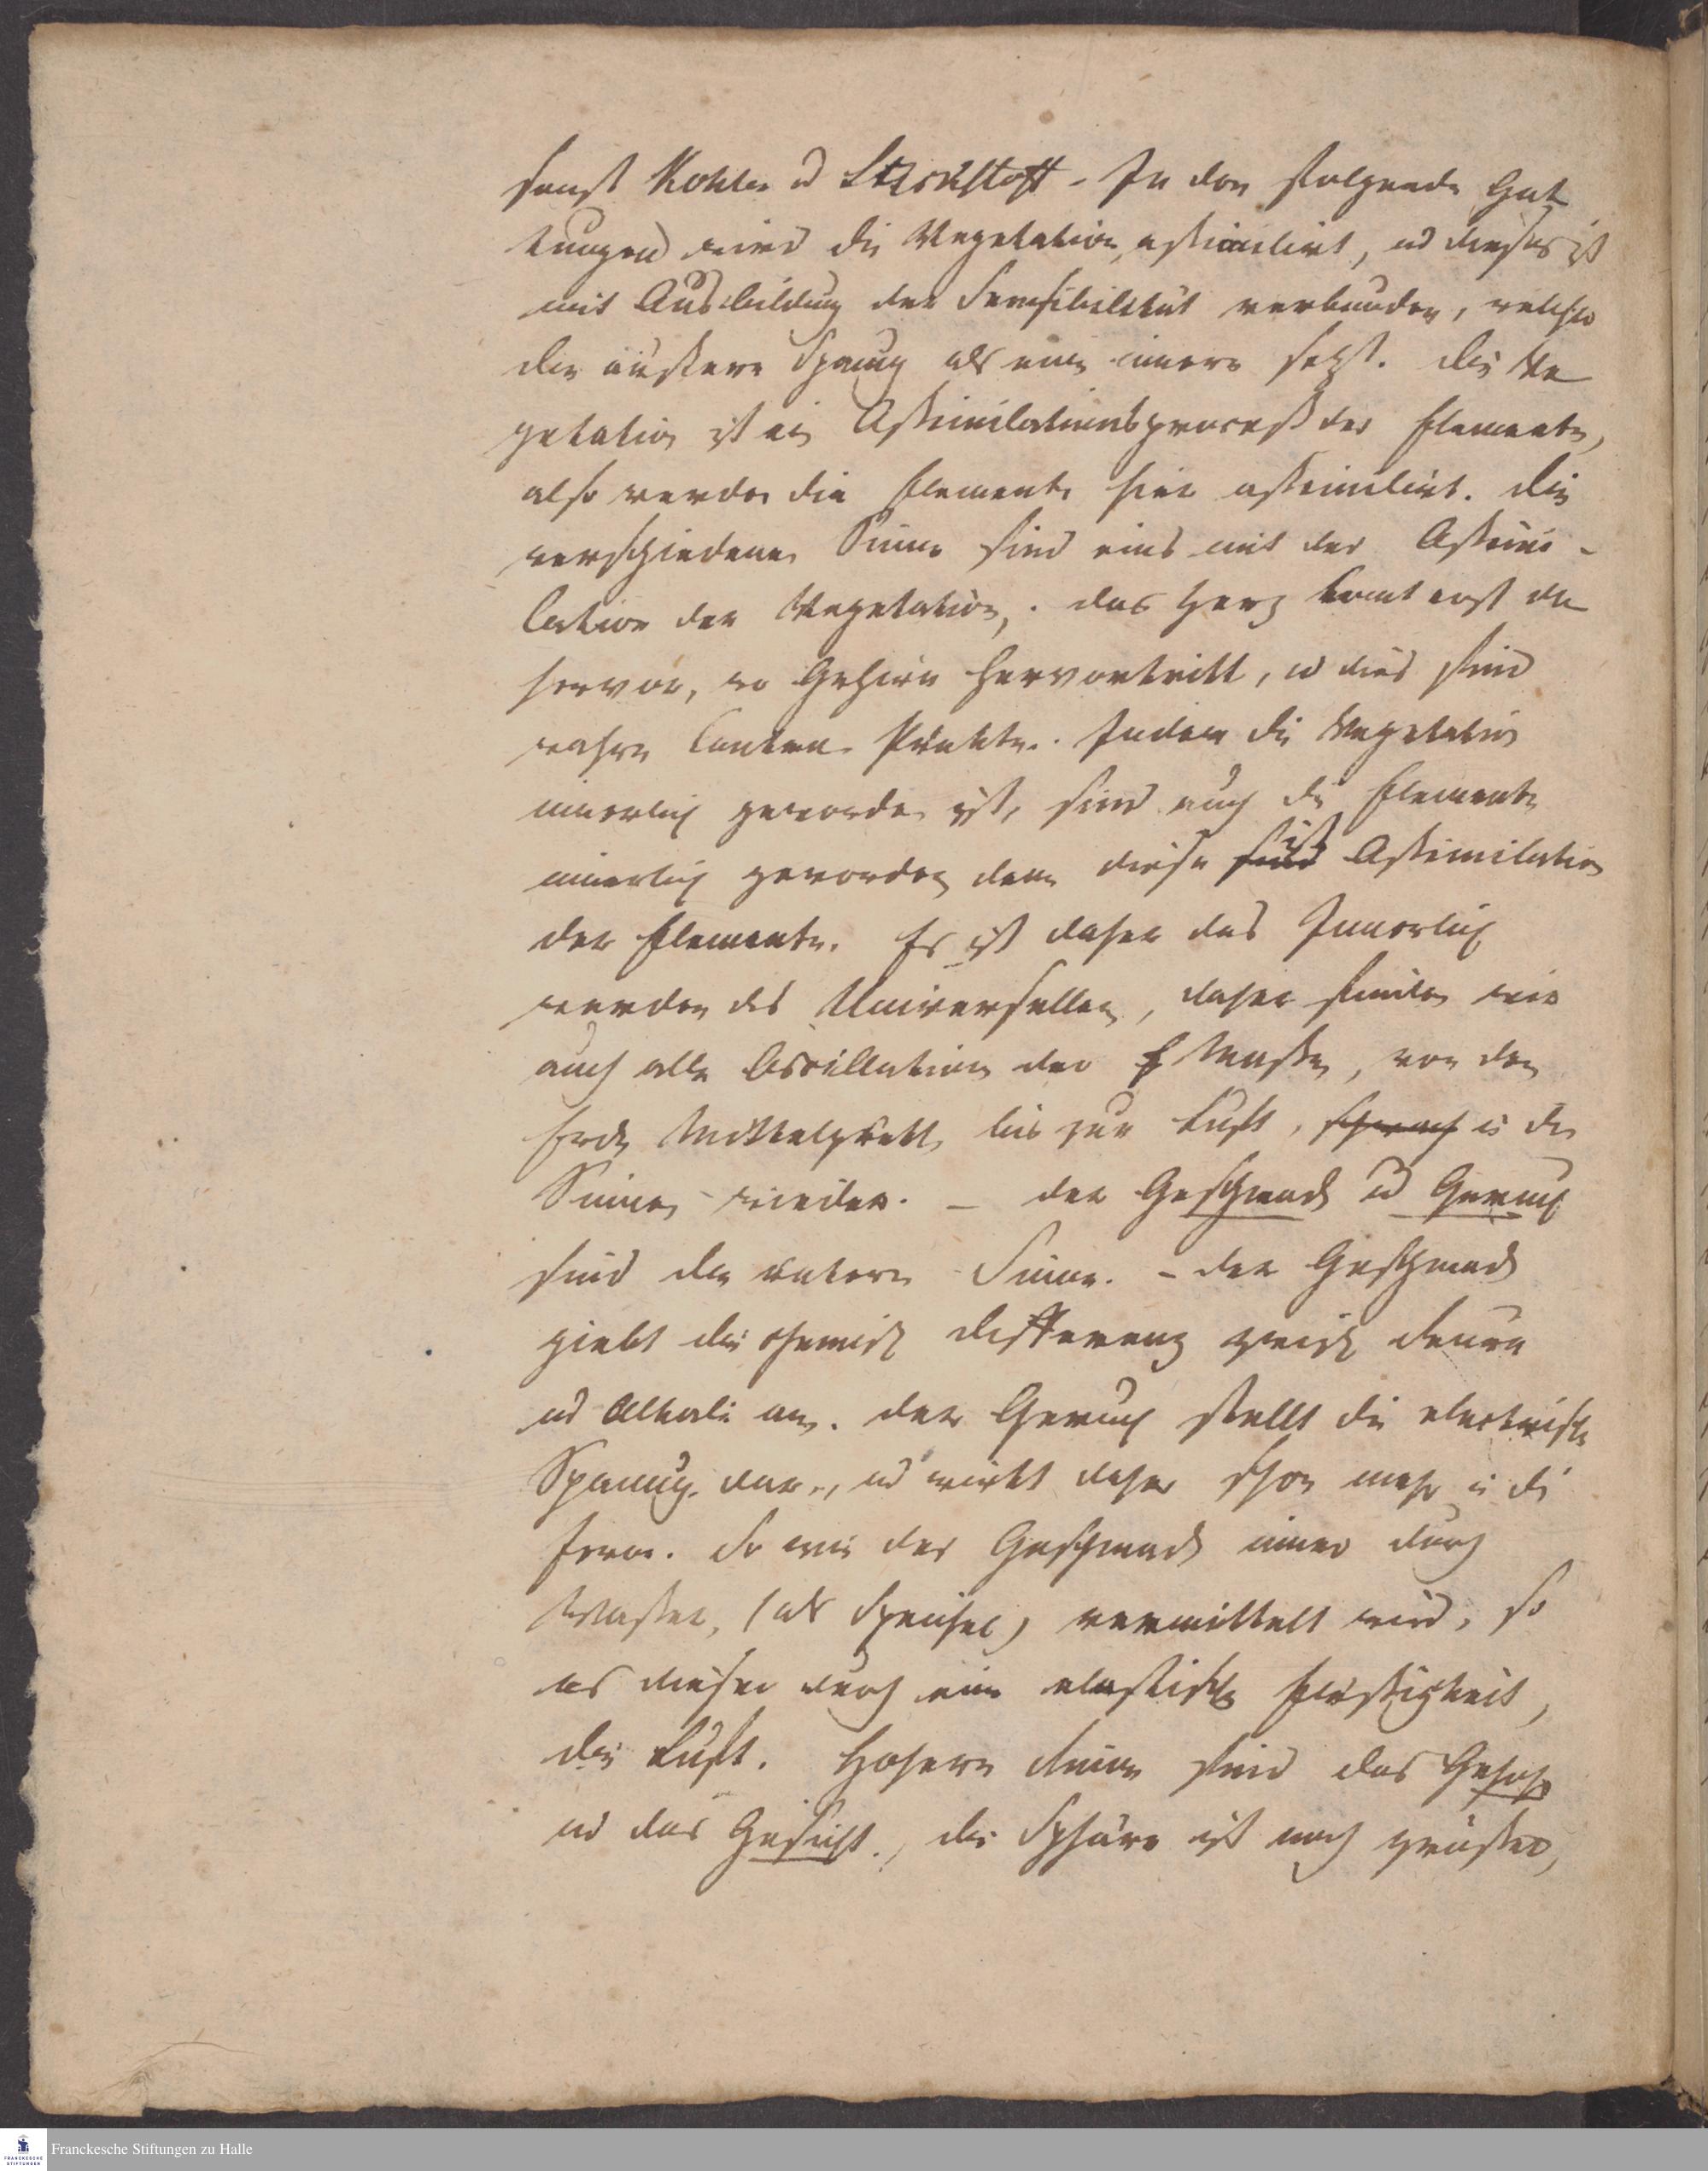 sonst Kohlen u Stickstoff - In den folgende Gat
tungen wird die Vegetation assimilirt, ud dieses ist
mit Ausbildung der Sensibilitat verbunden, welche
die äußere Spanug als eine innere setzt. die Ve
getation ist ein Assimilationsproceß der Elemente,
also werden die Elemente hier assimilirt. die
verschiedenen Sinne sind eins mit der Assimi-
lation der Vegetation,. das Herz komt erst da
hervor, wo Gehirn hervortritt, u dies sind
wahre Punkte. Indem die Vegetation
innerlich geworden ist, sind auch die Elemente
innerlich geworden denn diese sind ist Assimilation
der Elemente. Es ist daher das Innerlich
werden des Universellen, daher finden wir
auch alle Oscillation der E Massen, von den
Erde Mittelpunkt bis zur Luft, i den
Sinnen wieder. - der Geschmack ud Geruch
sind die untern Sinne. - der Geschmack
giebt die chemisch Differenz zwisch Säure
ud Alkali an. der Geruch stellt die electrische
Spanug dar, ud wirkt daher schon mehr i di
Ferne. So wie der Geschmack imer durch
Wasser, (als Speichel) vermittelt wird, so
es dieser durch eine elastische Flüssigkeit,
die Luft. Hohere Sinne sind das Gehoh
ud das Gesicht., die Sphäre ist noch größer,
Franckesche Stiftungen zu Halle
FRANCKESCHE
STIFTUNGEN